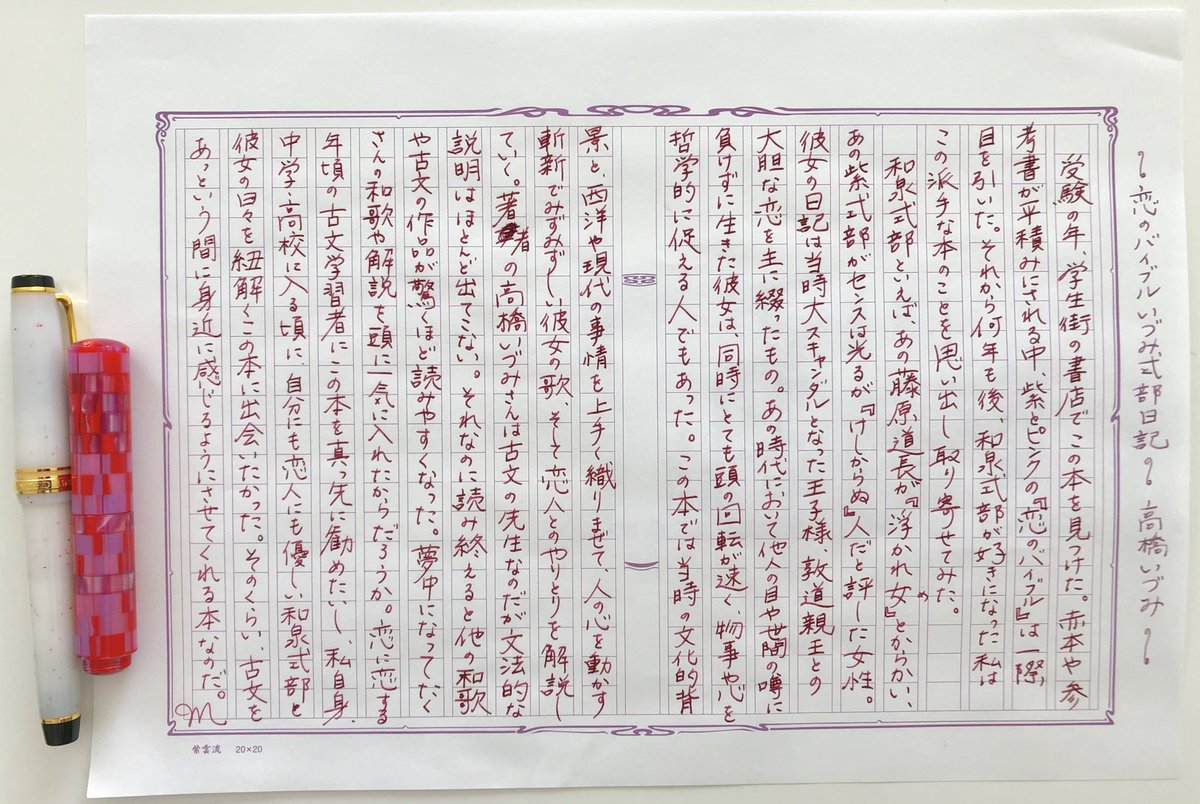 ～恋のバイブルいづみ式部日記～ 高橋いづみ～
受験の年、学生街の書店でこの本を見つけた。赤本や参
考書が平積みにされる中、紫とピンクの『恋のバイブル』は一際、
目を引いた。それから何年も後、和泉式部が好きになった私は
この派手な本のことを思い出し取り寄せてみた。
和泉式部といえば、あの藤原道長が『浮かれ女』とからかい、
め
あの紫式部がセンスは光るが『けしからぬ』人だと評した女性。
彼女の日記は当時大スキャンダルとなった王子様、敦道親王との
大胆な恋を主に綴ったもの。あの時代において他人の目や世間の噂に
負けずに生きた彼女は、同時にとても頭の回転が速く、物事や心を
哲学的に促える人でもあった。この本では当時の文化的背
景と、西洋や現代の事情を上手く織りまぜて、人の心を動かす
斬新でみずみずしい彼女の歌、そして恋人とのやりとりを解説し
ていく。著者の高橋いづみさんは古文の先生なのだが文法的な
説明はほとんど出てこない。それなのに読み終えると他の和歌
や古文の作品が驚くほど読みやすくなった。夢中になってたく
さんの和歌や解説を頭に一気に入れたからだろうか。恋に恋する
年頃の古文学習者にこの本を真っ先に勧めたいし、私自身、
中学・高校に入る頃に、自分にも恋人にも優しい和泉式部と
彼女の日々を紐解くこの本に出会いたかった。そのくらい、古文を
あっという間に身近に感じるようにさせてくれる本なのだ。
M
紫雲流 20×20